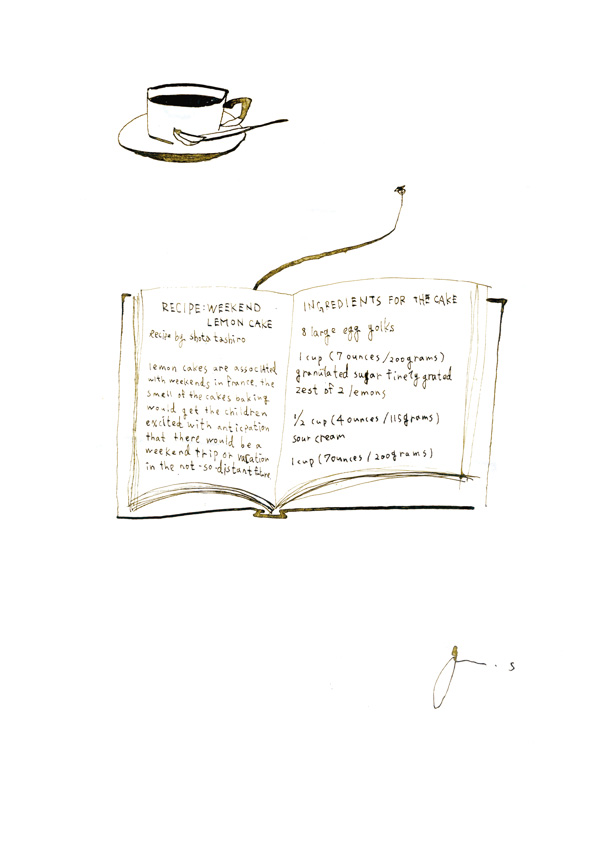 RECIPE:WEEKEND
LEMON CAKE
Recipe by shota tashiro
lemon cakes are associated
with weekends in france. the
smell of the cakes baking
would get the children
excited with anticpation
that there would be a
weekend trip or vacation
in the not-so-distant
INGREDIENTS FOR THE CAKE
8 large egg golks
1 cup (7 ounces/200grams)
granulated sugar finely grated
zest of 2 lemons
1/2 cup (4 ounces/115grams)
sour cream
1 cup (7ounces/200grams)